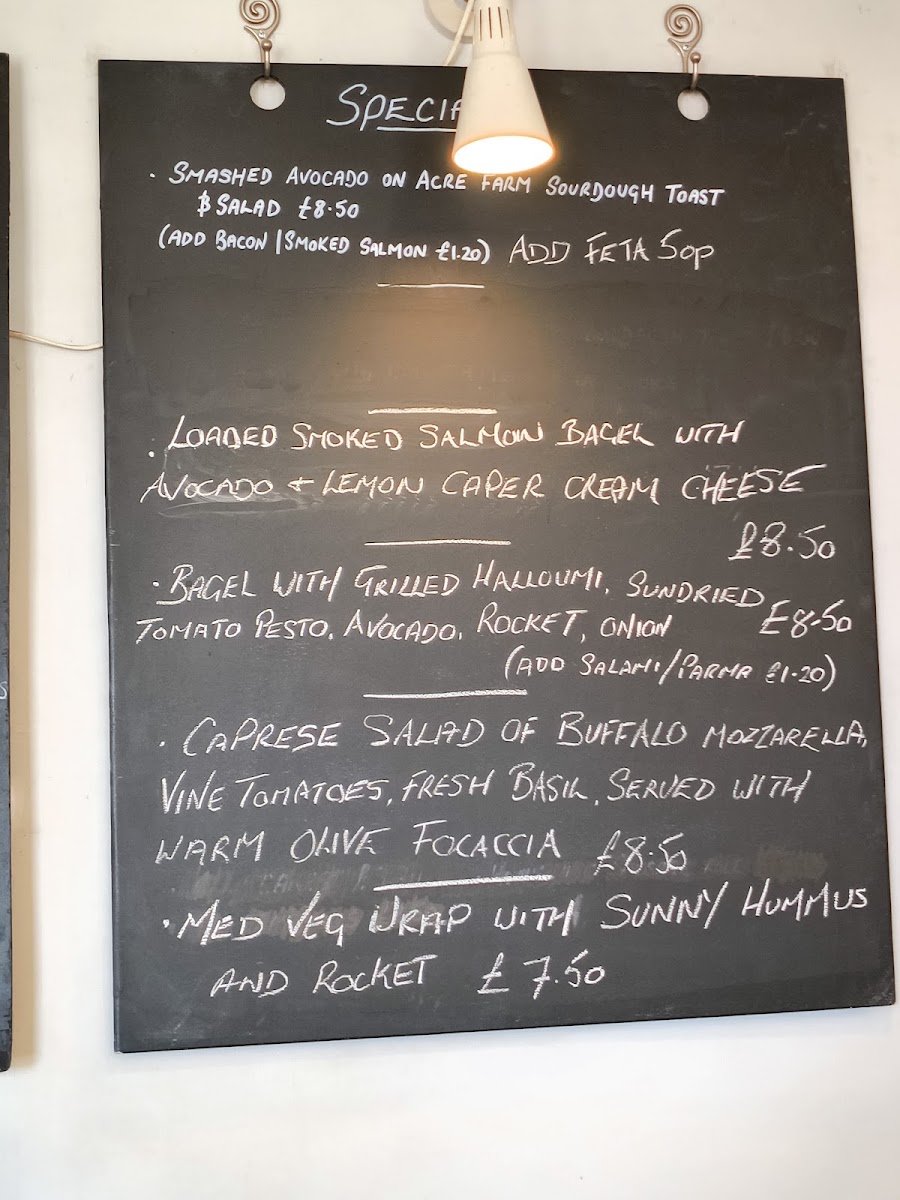 SPECIA
· SMASHED AVOCADO ON ACRE FARM SOURDOUGH TOAST
& SALAD £8.50
(ADD BACON | SMOKED SALMON £1.20) ADD FETA 50p
· LOADED SMOKED SALMON BAGEL WITH
AVOCADO + LEMON CAPER CREAM CHEESE
£8.50
· BAGEL WITH GRILLED HALLOUMI, SUNDRIED
TOMATO PESTO, AVOCADO, ROCKET, ONION £8.50
(ADD SALAMI/PARMA £1.20)
· CAPRESE SALAD OF BUFFALO MOZZARELLA,
VINE TOMATOES, FRESH BASIL, SERVED WITH
WARM OLIVE FOCACCIA £8.50
· MED VEG WRAP WITH SUNNY HUMMUS
AND ROCKET £7.50